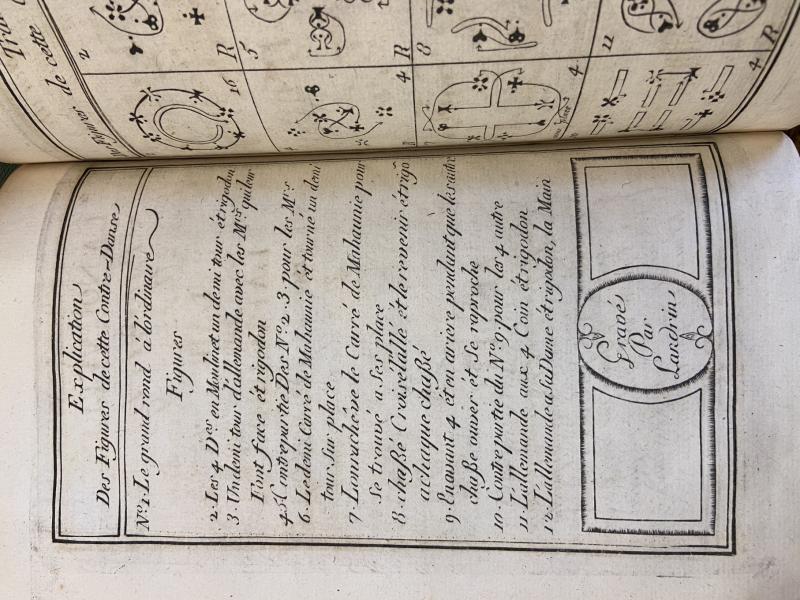 Explication
Des Figures de cette Contre-Danse
Nº 1. Le grand rond á lordinaire
Figures
2. Les 4 Des en Moulinet un demi tour et rigodon
3. Un demi tour d'allemande avec les Mrs qui leur
font face et rigodon
4. 5 Contrepartie Des Nº 2. 3 pour les Mrs
6. Le demi Carré de Mahaunie et tourné un demi
tour Sur place
7. L'on rachêve le Carré de Mahaunie pour
Se trouvé a Ses place
8. chaßé Croisé l'allé et le revenir et rigo
a chaque chaßé
9. En avant 4 et en ariere pendant que les autre
chaße ouver et Se raproche
10. Contre partie du Nº 9. pour les 4 autre
11. L'allemande aux 4 Coin et rigodon
12. L'allemande a Sa Dame et rigodon, la Main
Gravé
Par
Landrin
de cette
2
R
5
R
8
11
R
16
4
7
4
4